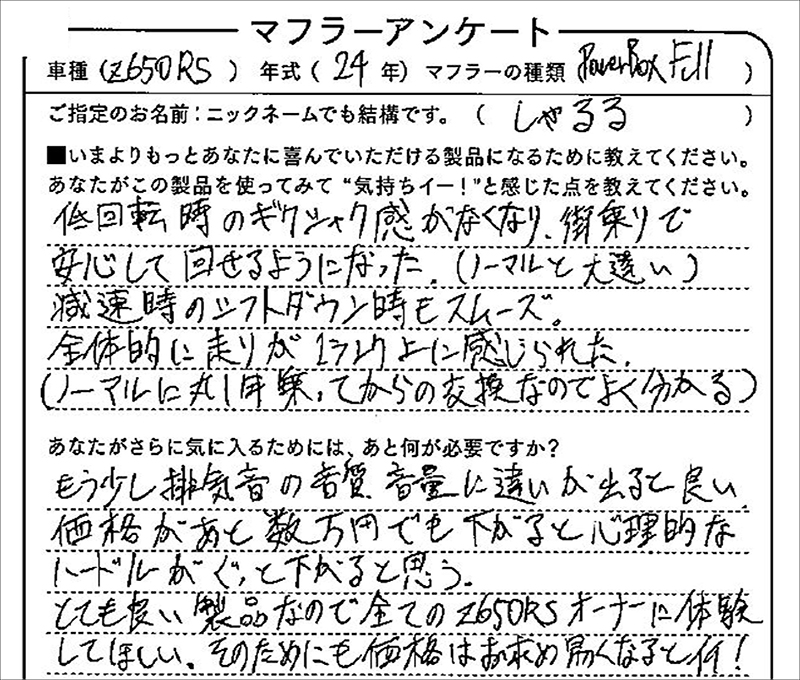 マフラーアンケート
車種(Z650RS) 年式(24年) マフラーの種類(PowerBox Full)
ご指定のお名前:ニックネームでも結構です。(しゃるる)
■いまよりもっとあなたに喜んでいただける製品になるために教えてください。
あなたがこの製品を使ってみて“気持ちイー!”と感じた点を教えてください。
低回転時のギクシャク感がなくなり、街乗りで
安心して回せるようになった。(ノーマルと大違い)
減速時のシフトダウン時もスムーズ。
全体的に走りが1ランク上に感じられた。
(ノーマルに丸1年乗ってからの交換なのでよく分かる)
あなたがさらに気に入るためには、あと何が必要ですか?
もう少し排気音の音質、音量に違いが出ると良い。
価格があと数万円でも下がると心理的な
ハードルがぐっと下がると思う。
とても良い製品なので全てのZ650RSオーナーに体験
してほしい。そのためにも価格はお求め易くなると付!